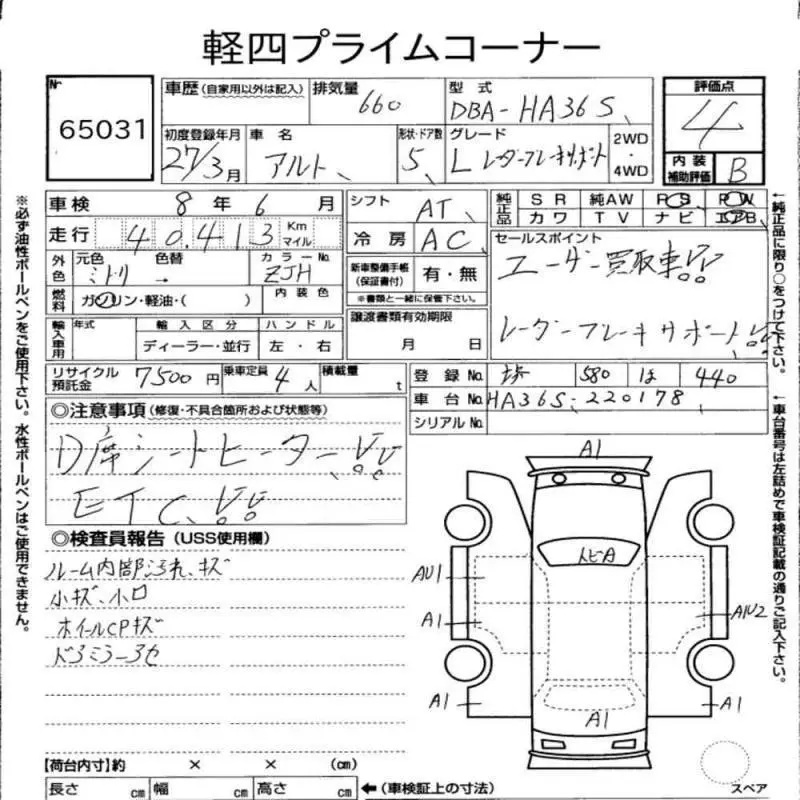 軽四プライムコーナー
Nr
65031
車歴 (自家用以外は記入)
排気量
660
型式
DBA-HA36S
評価点
4
初度登録年月
27/3月
車名
アルト
形状・ドア数
5
グレード
L レーダーブレーキサポート
2WD
・
4WD
内装
補助評価
B
車検
8年6月
走行
40,413
Km
マイル
外色
元色
ミドリ
色替
→
カラーNo
ZJH
燃料
ガソリン・軽油・( )
内装色
輸入車用
年式
輸入区分
ディーラー・並行
ハンドル
左・右
シフト
AT
冷房
AC
新車整備手帳
(保証書付)
有・無
※書類と一緒に保管下さい。
譲渡書類有効期限
月 日
純正品
SR 純AW PS PW
カワ TV ナビ エアB
セールスポイント
ユーザー買取車!!
レーダーブレーキサポート!!
←純正品に限り○をつけて下さい。
リサイクル
預託金
7500円
乗車定員
4人
積載量
t
登録No.
580 は 440
車台No.
HA36S-220178
シリアルNo.
←車台番号は左詰めで車検証記載の通りご記入下さい。
◎注意事項 (修復・不具合箇所および状態等)
D席シートヒーター!!
ETC!!
◎検査員報告 (USS使用欄)
ルーム内部汚れ、キズ
小キズ、小凹
ホイールCPキズ
ドアミラーアセ
※必ず油性ボールペンをご使用下さい。水性ボールペンはご使用できません。
A1
トビA
AU1
A1
AU2
A1
A1
A1
【荷台内寸】約 × × (cm)
長さ cm 幅 cm 高さ cm
←(車検証上の寸法)
スペア